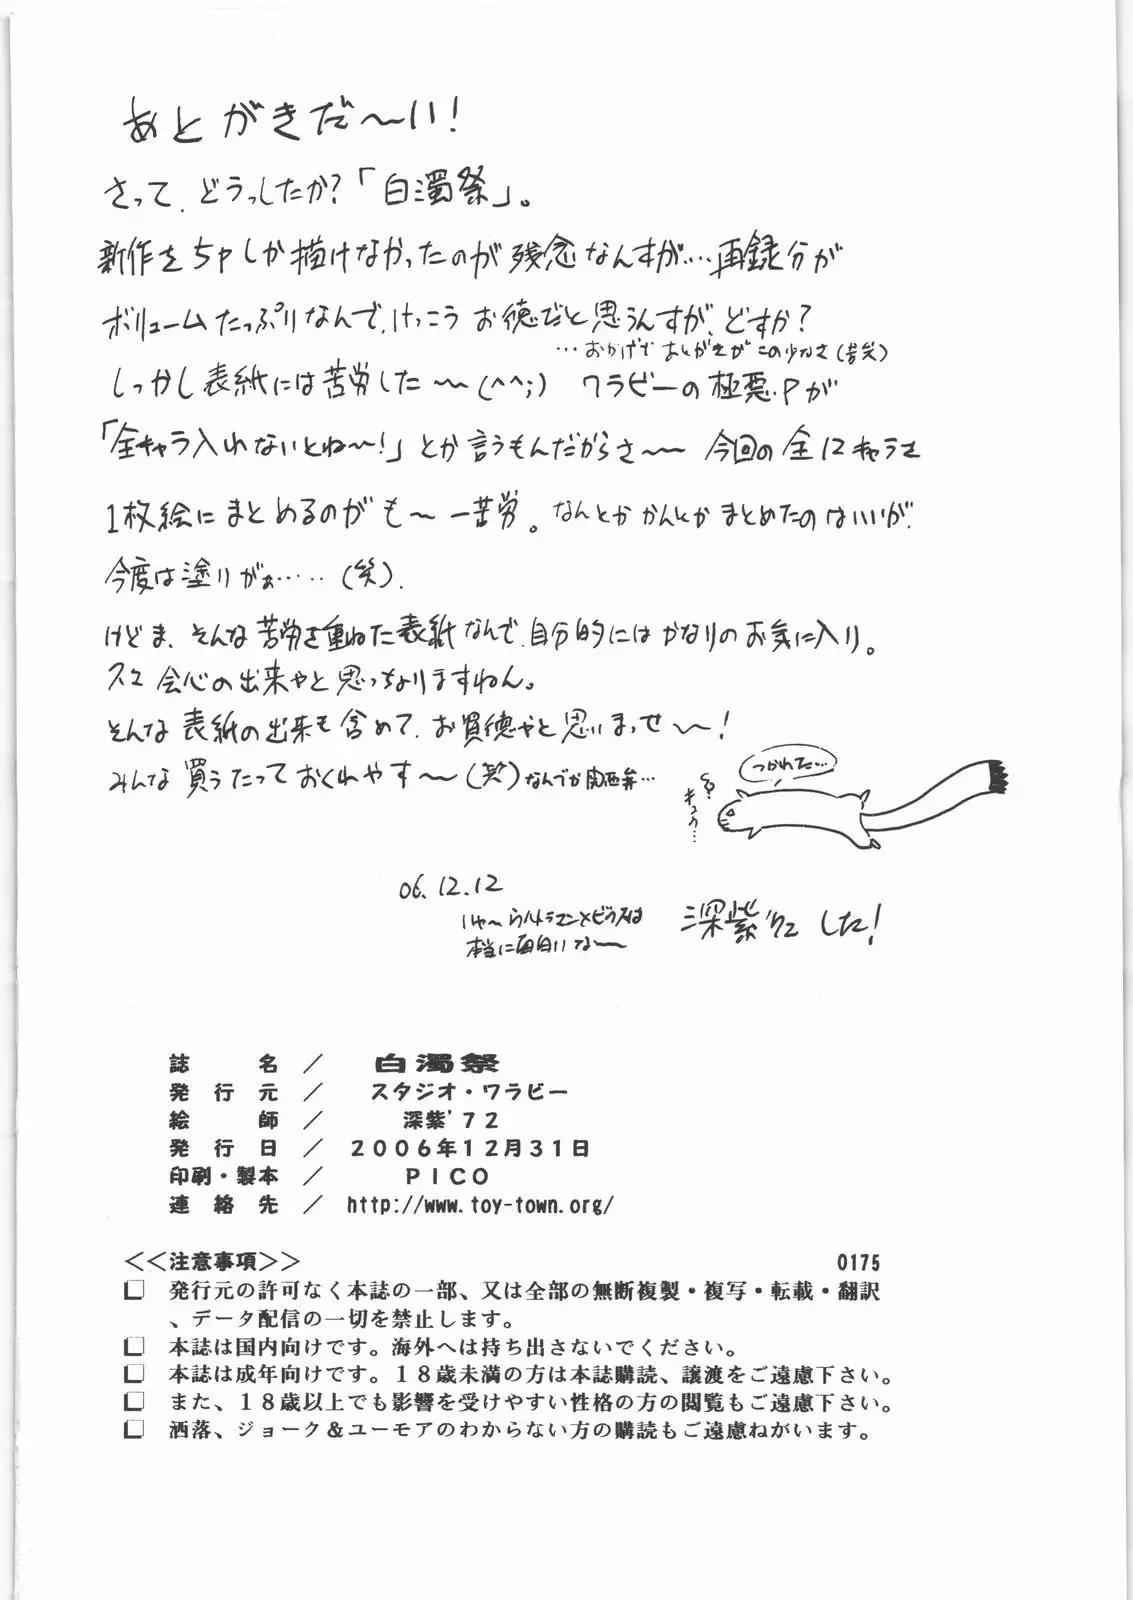 あとがきだ〜い!
さって、どうっしたか?「白濁祭」。
新作をちょしか描けなかったのが残念なんすが…再録分が
ボリュームたっぷりなんで、けっこうお徳だと思うんすが、どすか?
…おかげであとがきがこの少なさ(苦笑)
しっかし表紙には苦労した〜(^^;) ワラビーの極悪Pが
「全キャラ入れないとね〜!」とか言うもんだからさ〜 今回の全12キャラを
1枚絵にまとめるのがも〜一苦労。なんとかかんとかまとめたのはいいが、
今度は塗りがぁ……(笑)。
けどま、そんな苦労を重ねた表紙なんで、自分的にはかなりのお気に入り。
会心の出来やと思っちょりますねん。
そんな表紙の出来も含めて、お買徳やと思いまっせ〜!
みんな買うたっておくれやす〜(笑)なんでか関西弁…
つかれた…
キュウ…
06.12.12
いや〜ウルトラマンメビウスは
本当に面白いな〜
深紫'72 でした!
誌名/白濁祭
発行元/スタジオ・ワラビー
絵師/深紫'72
発行日/2006年12月31日
印刷・製本/PICO
連絡先/http://www.toy-town.org/
<<注意事項>> 0175
□ 発行元の許可なく本誌の一部、又は全部の無断複製・複写・転載・翻訳
、データ配信の一切を禁止します。
□ 本誌は国内向けです。海外へは持ち出さないでください。
□ 本誌は成年向けです。18歳未満の方は本誌購読、譲渡をご遠慮下さい。
□ また、18歳以上でも影響を受けやすい性格の方の閲覧もご遠慮下さい。
□ 洒落、ジョーク&ユーモアのわからない方の購読もご遠慮ねがいます。